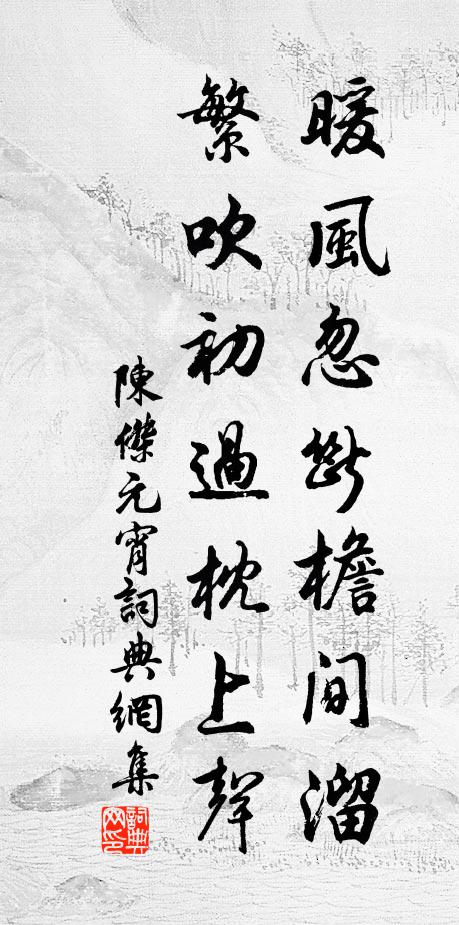 暖風忽斷檐間溜
繁吹初過枕上聲
陳傑元宵詞典網集
詞典網印